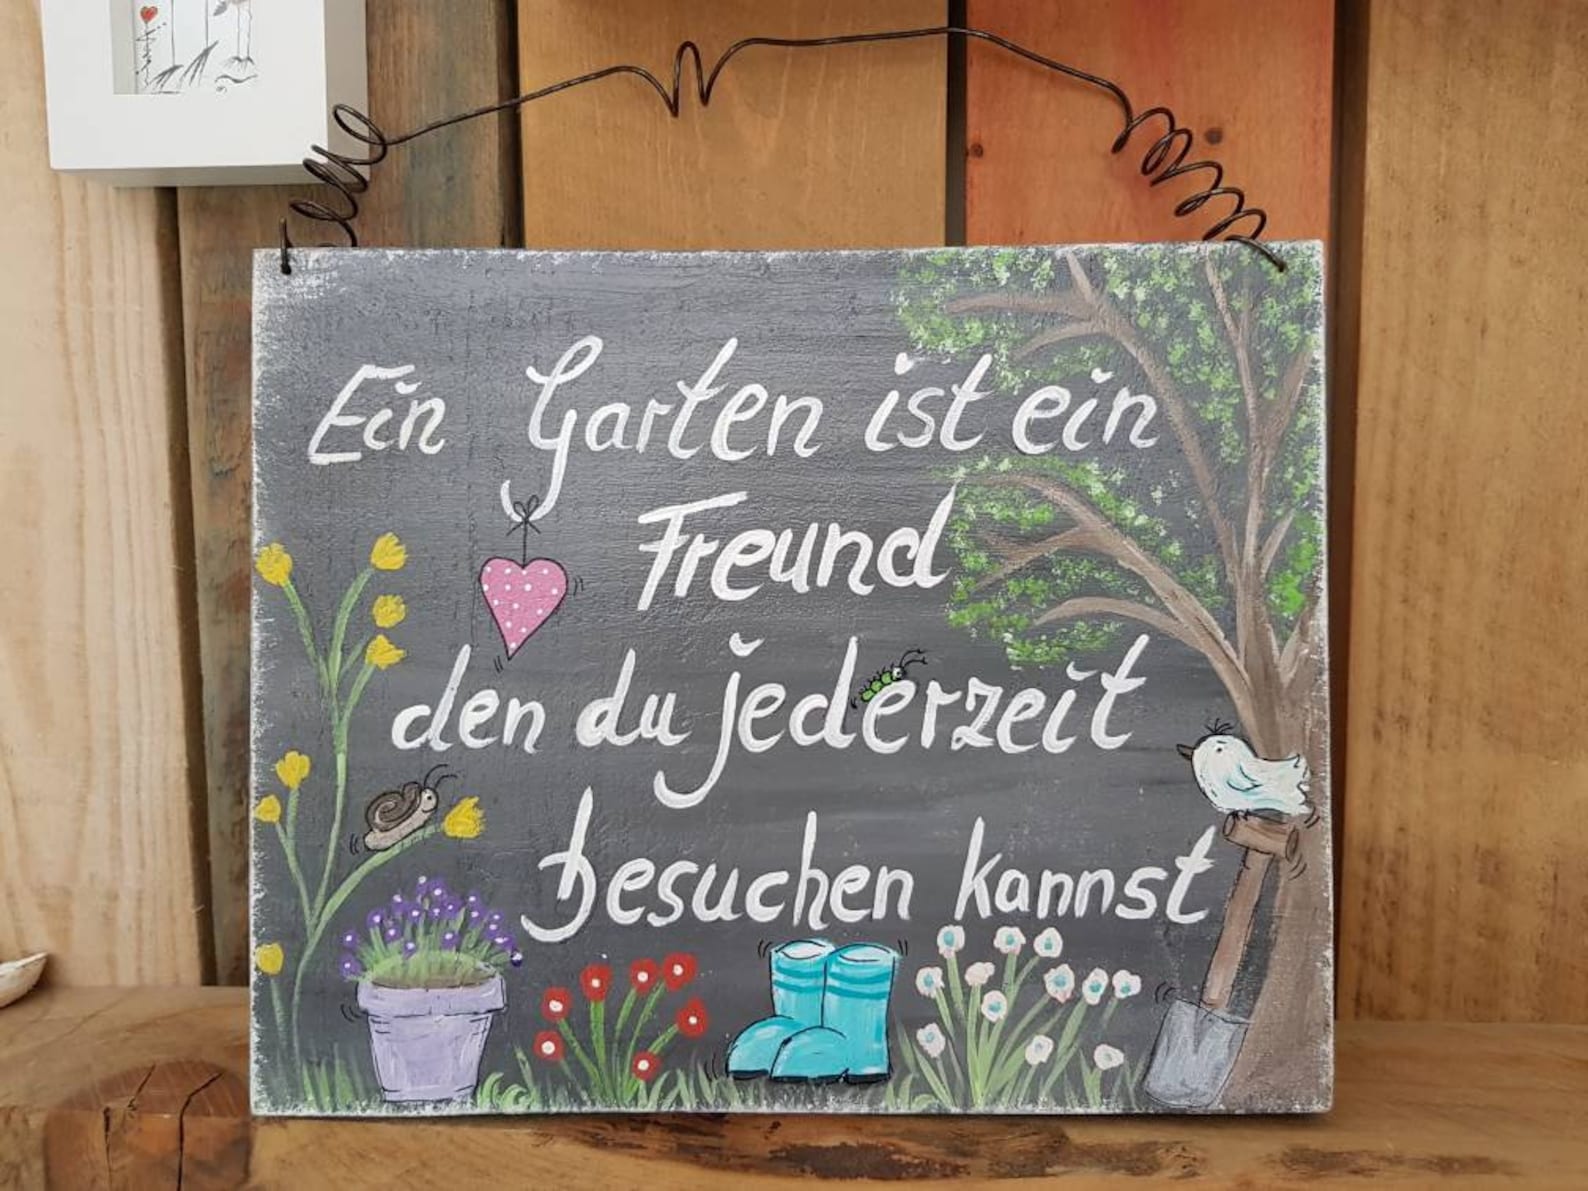 Ein Garten ist ein
Freund
den du jederzeit
besuchen kannst